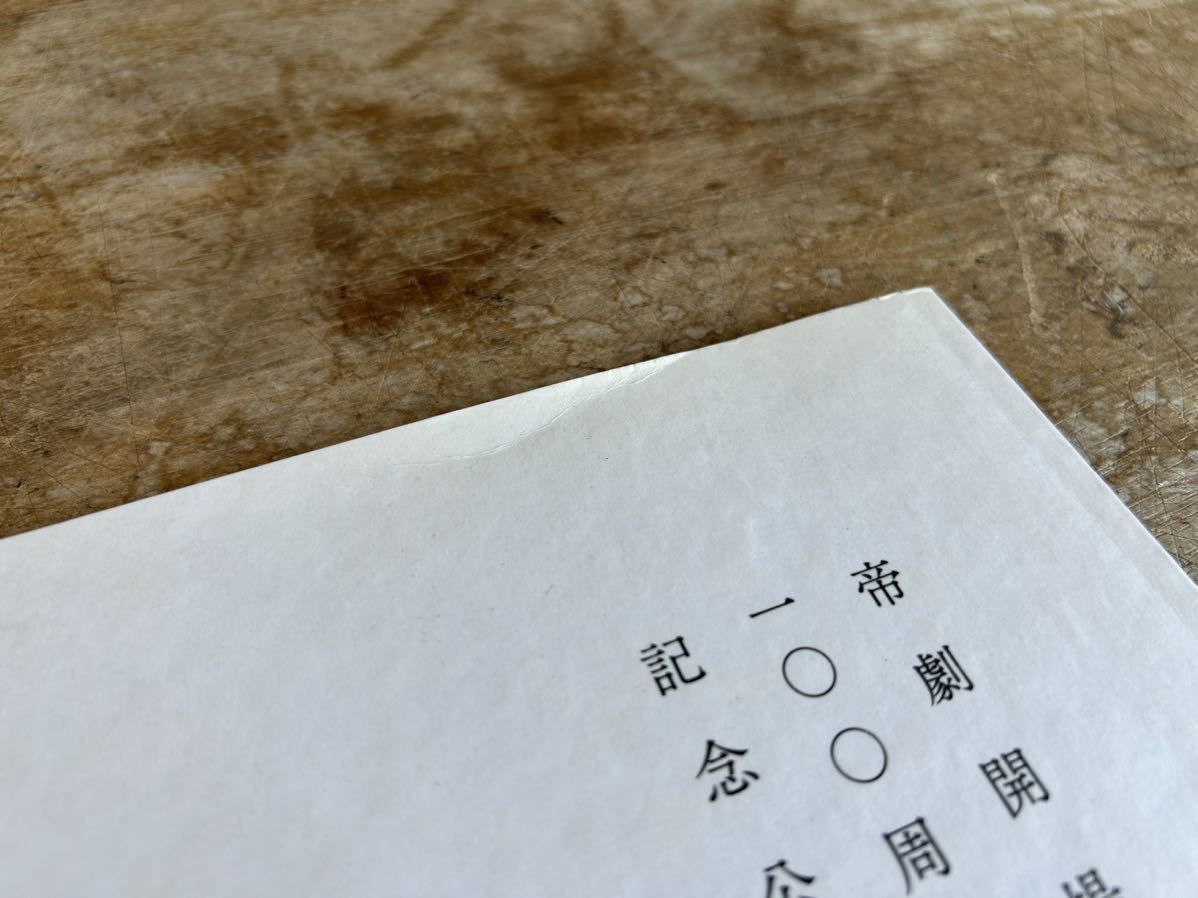 帝劇開場
一〇〇周
記念公